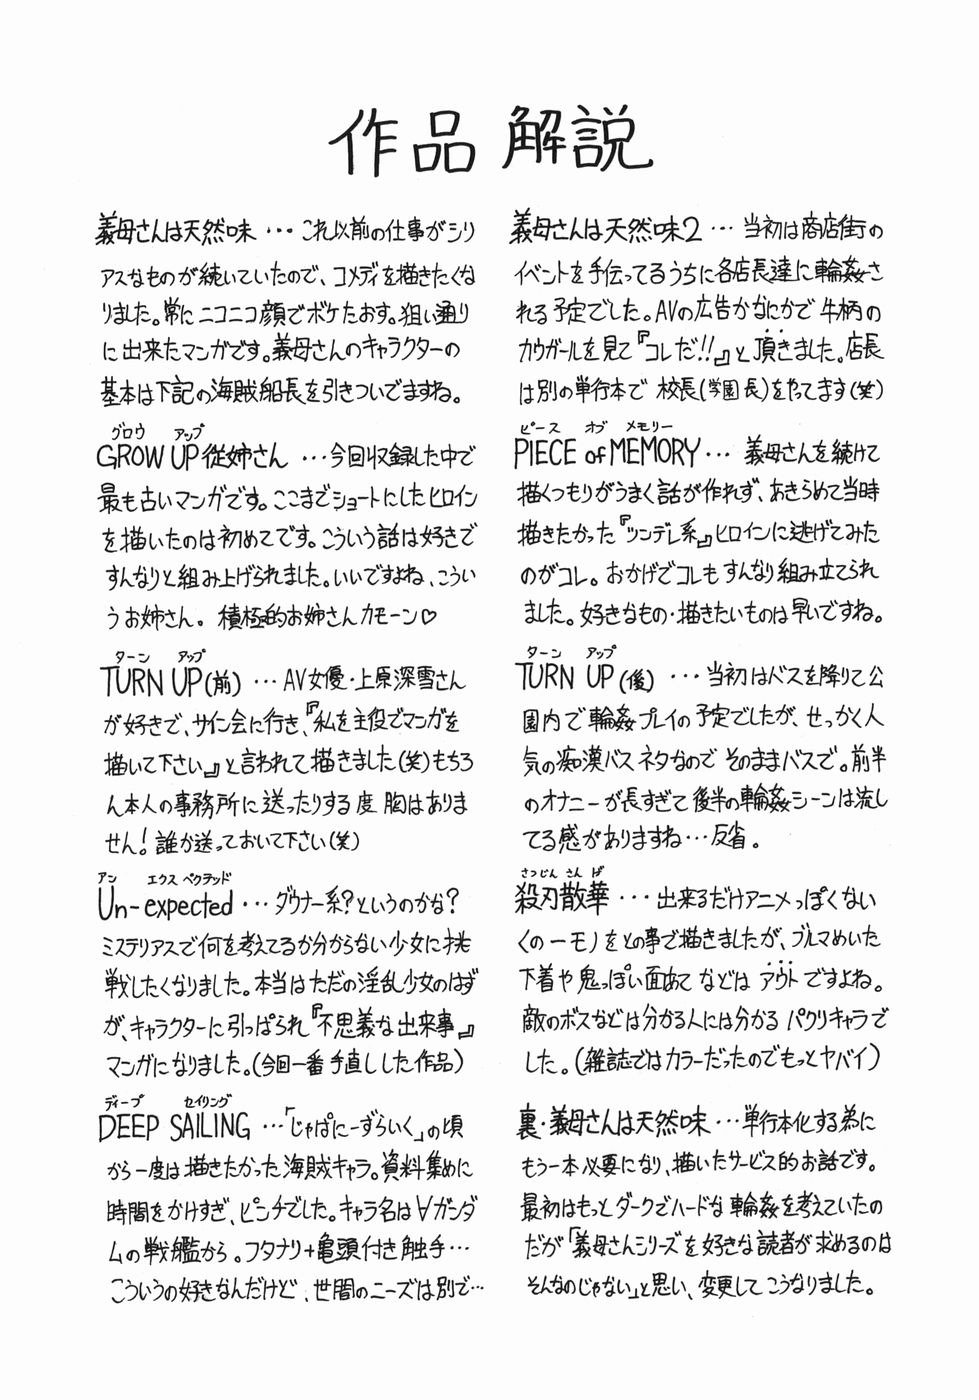 作品解説
義母さんは天然味・・・これ以前の仕事がシリ
アスなものが続いていたので、コメディを描きたくな
りました。常にニコニコ顔でボケたおす。狙い通り
に出来たマンガです。義母さんのキャラクターの
基本は下記の海賊船長を引きついでますね。
グロウ アップ
GROW UP従姉さん ・・・今回収録した中で
最も古いマンガです。ここまでショートにしたヒロイン
を描いたのは初めてです。こういう話は好きで
すんなりと組み上げられました。いいですよね、こうい
うお姉さん。積極的お姉さんカモーン♡
ターン アップ
TURN UP(前) ・・・AV女優・上原深雪さん
が好きで、サイン会に行き、『私を主役でマンガを
描いて下さい』と言われて描きました(笑)もちろ
ん本人の事務所に送ったりする度胸はありま
せん!誰か送っておいて下さい(笑)
アン エクスペクテッド
Un-expected ・・・ダウナー系?というのかな?
ミステリアスで何を考えてるか分からない少女に挑
戦したくなりました。本当はただの淫乱少女のはず
が、キャラクターに引っぱられ『不思義な出来事』
マンガになりました。(今回一番手直しした作品)
ディープ セイリング
DEEP SAILING ・・・「じゃぱにーずらいく」の頃
から一度は描きたかった海賊キャラ。資料集めに
時間をかけすぎ、ピンチでした。キャラ名は∀ガンダ
ムの戦艦から。フタナリ+亀頭付き触手・・・
こういうの好きなんだけど、世間のニーズは別で・・・
義母さんは天然味2 ・・・当初は商店街の
イベントを手伝ってるうちに各店長達に輪姦さ
れる予定でした。AVの広告かなにかで牛柄の
カウガールを見て『コレだ!!』と頂きました。店長
は別の単行本で校長(学園長)をやってます(笑)
ピース オブ メモリー
PIECE of MEMORY・・・義母さんを続けて
描くつもりがうまく話が作れず、あきらめて当時
描きたかった『ツンデレ系』ヒロインに逃げてみた
のがコレ。おかげでコレもすんなり組み立てられ
ました。好きなもの・描きたいものは早いですね。
ターン アップ
TURN UP(後) ・・・当初はバスを降りて公
園内で輪姦プレイの予定でしたが、せっかく人
気の痴漢バスネタなのでそのままバスで。前半
のオナニーが長すぎて後半の輪姦シーンは流し
てる感がありますね・・・反省。
さつじんさんげ
殺刃散華 ・・・出来るだけアニメっぽくない
くの一モノをとの事で描きましたが、ブルマめいた
下着や鬼っぽい面あてなどはアウトですよね。
敵のボスなどは分かる人には分かるパクリキャラで
した。(雑誌ではカラーだったのでもっとヤバイ)
裏・義母さんは天然味・・・単行本化する為に
もう一本必要になり、描いたサービス的お話です。
最初はもっとダークでハードな輪姦を考えていたの
だが「義母さんシリーズを好きな読者が求めるのは
そんなのじゃない」と思い、変更してこうなりました。